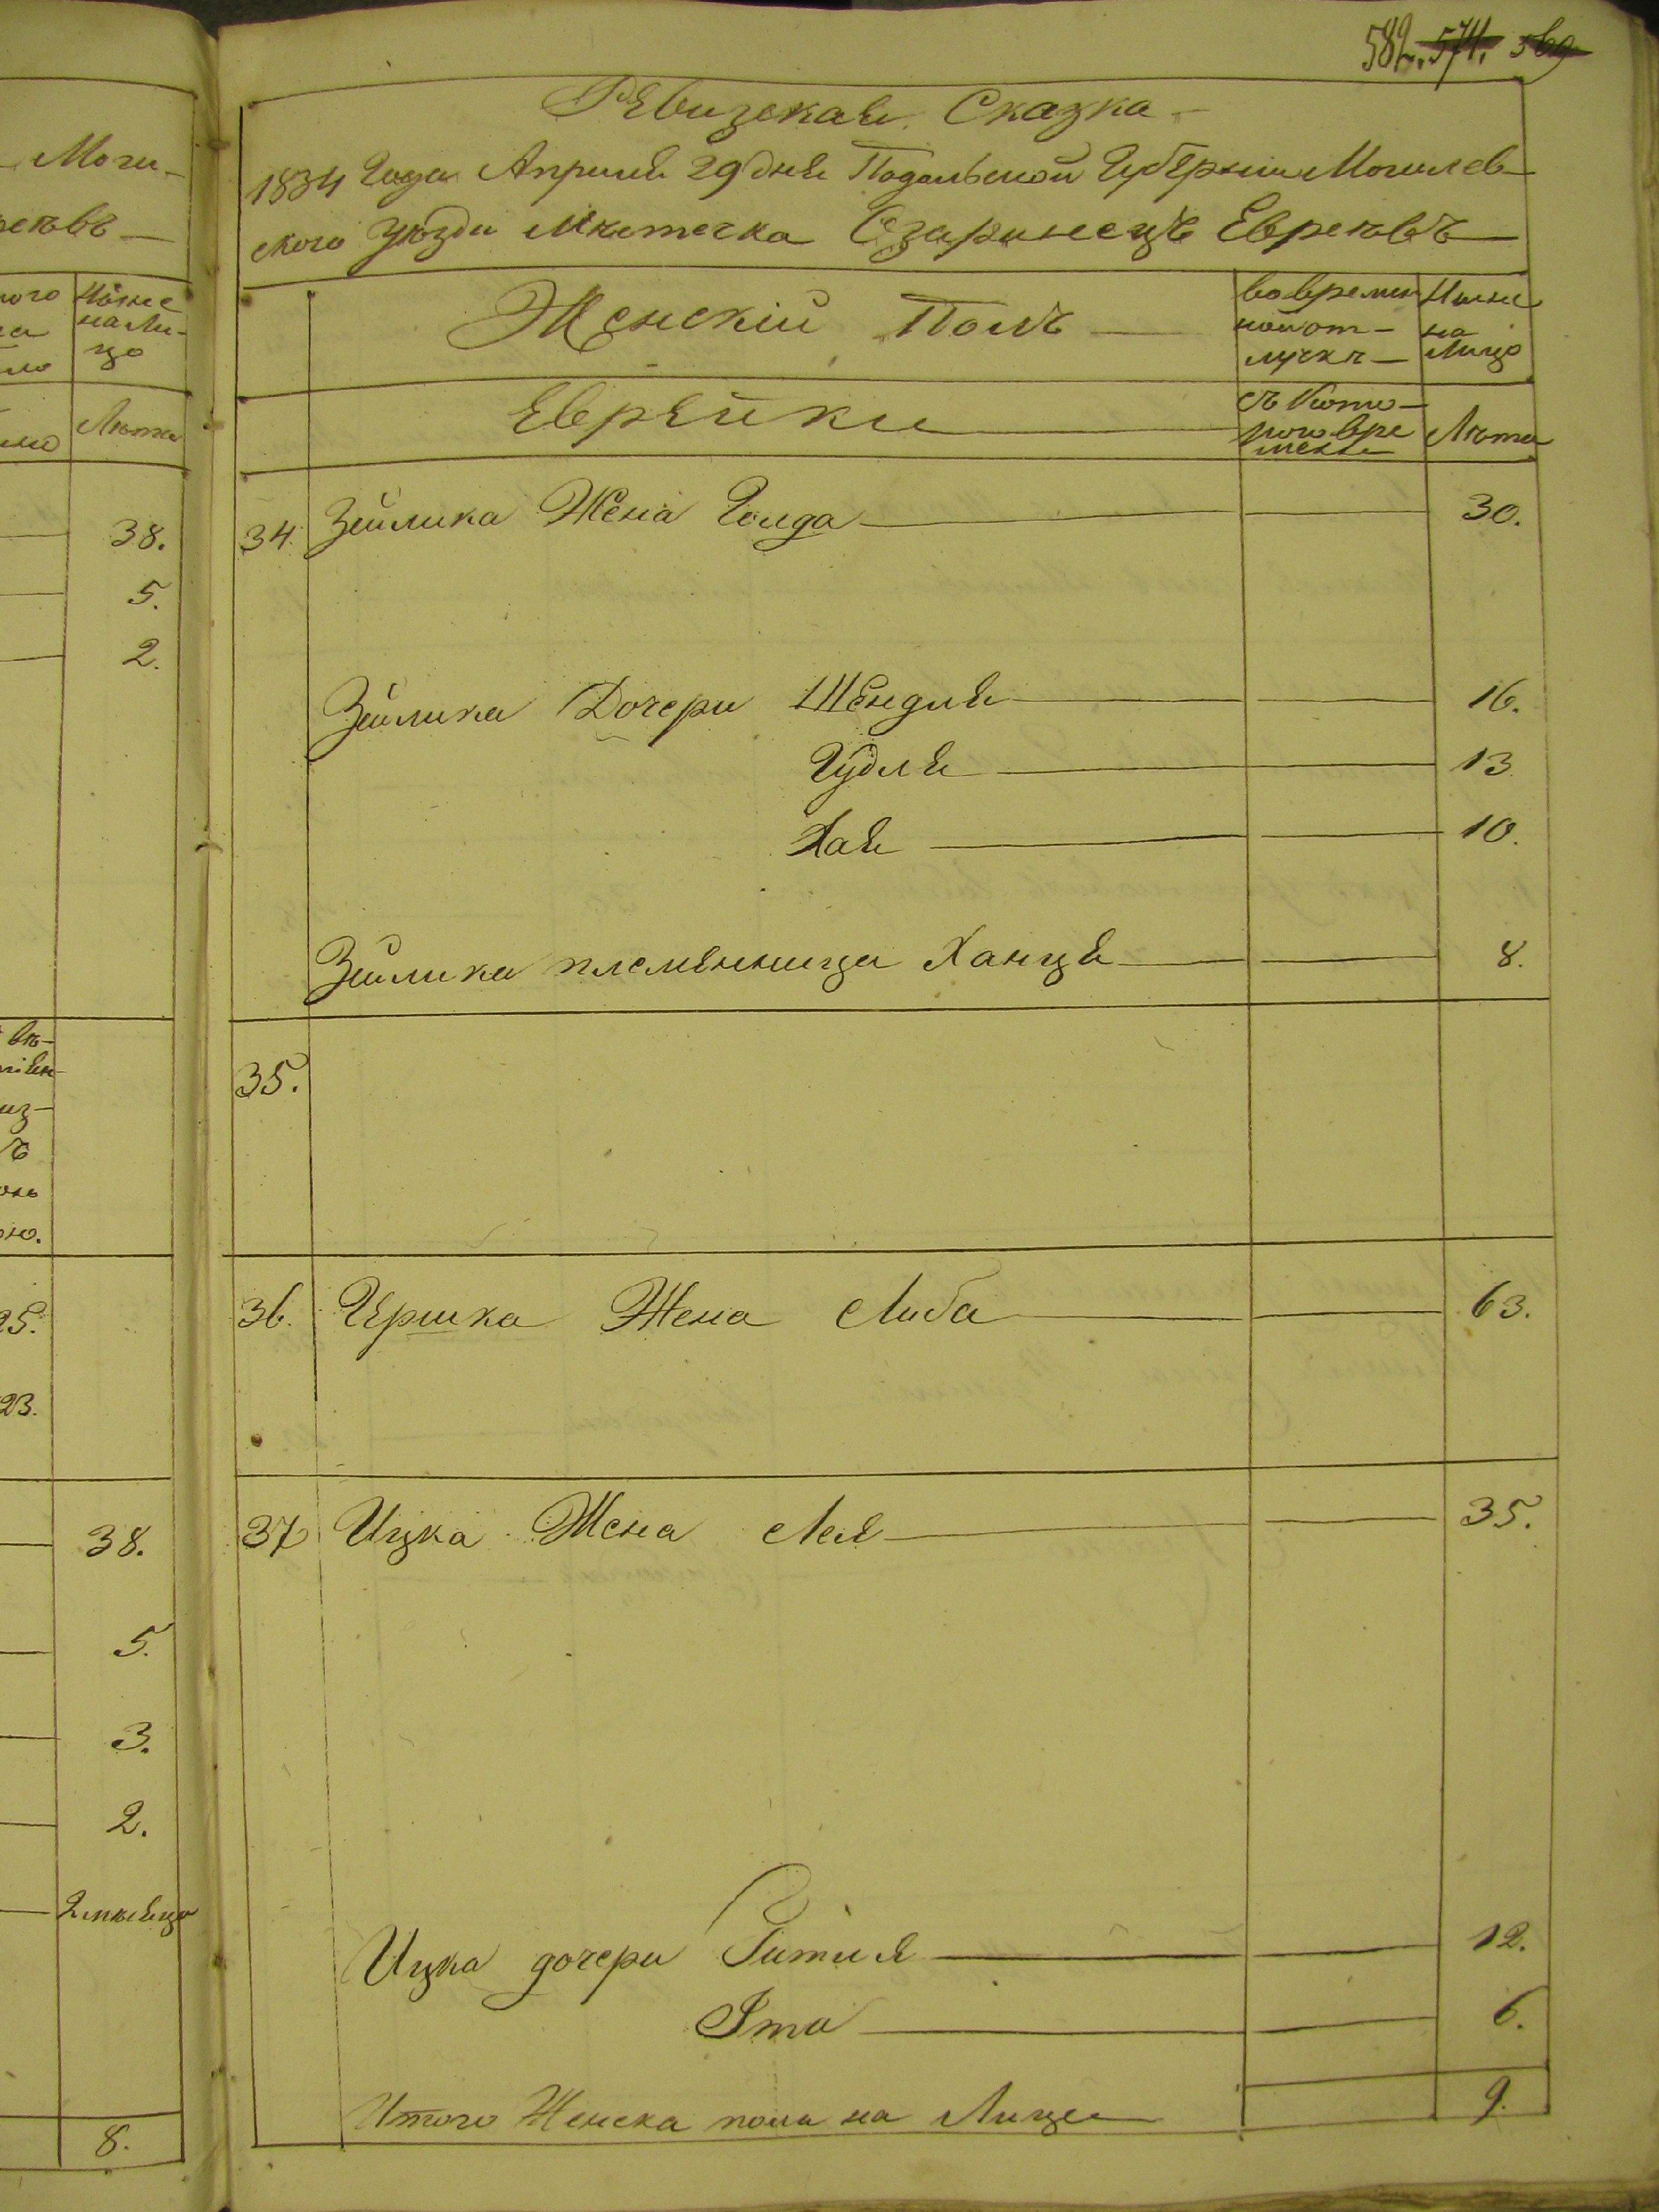 Моги-
582. 574. 569
Ревизская Сказка
1834 Года Апреля 29 дня Подольской Губернии Могилев-
ского Уезда Местечка Озаринецъ Евреевъ
Женскій Полъ
во времен
ной от-
лучке
Ныне
на
Лицо
Еврейки
съ Кото-
рого вре
мени
Лета
Ныне
на Ли-
цо
Лета
34 Зейлика Жена Голда 30.
Зейлика Дочери Шендля 16.
Гудля 13
Хая 10.
Зейлика племянница Ханця 8.
35.
36. Гершка Жена Либа 63.
37 Ицка Жена Лея 35.
Ицка дочери Ритля 12.
Ита 6.
Итого Женска пола на Лице 9.
38.
5.
2.
25.
23.
38.
5.
3.
2.
8.